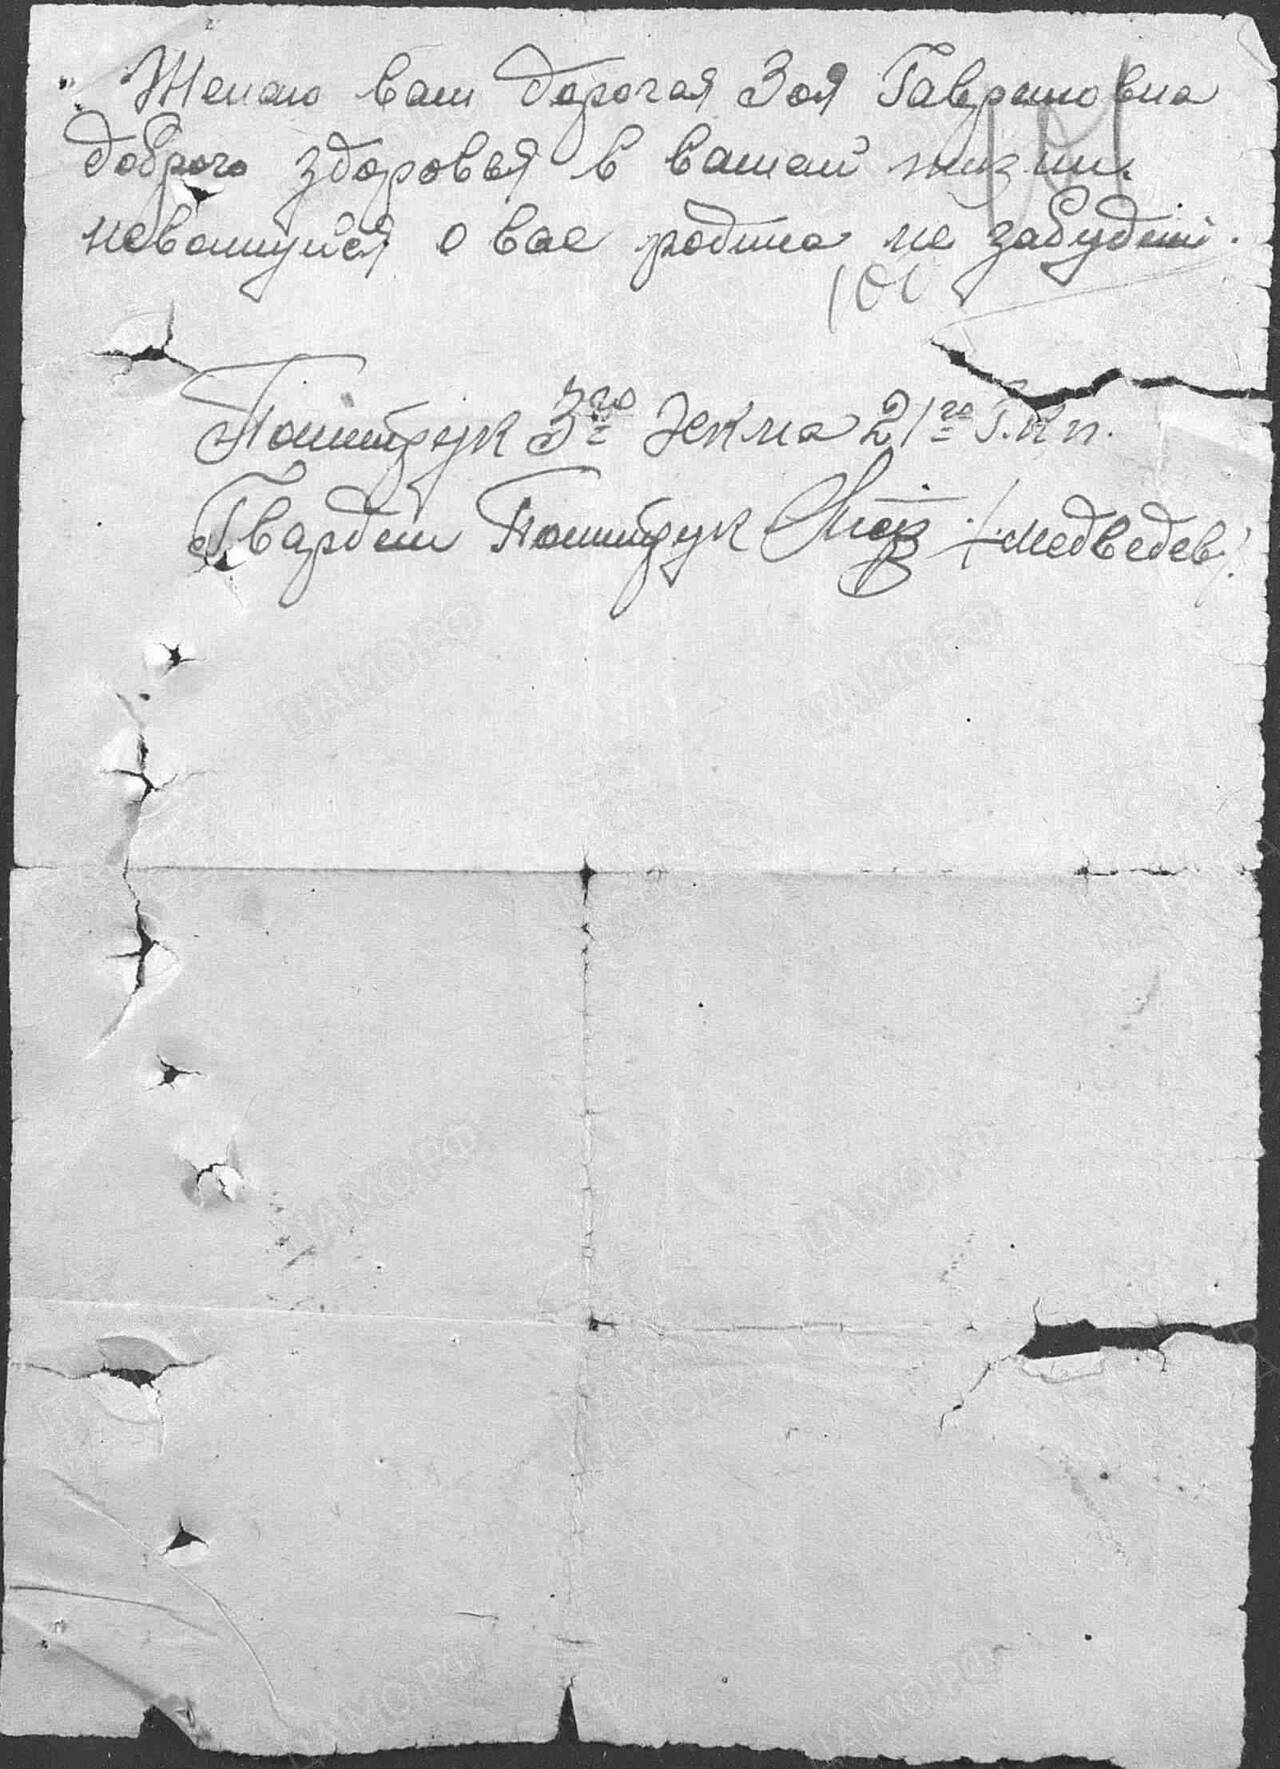 Желаю вам дорогая Зоя Гавриловна
доброго здоровья в вашей жизни.
неволнуйся о вас родина не забудит.
100
Политрук 3го Эск-на 21го Г.К.П.
Гвардеи Политрук /медведев/.